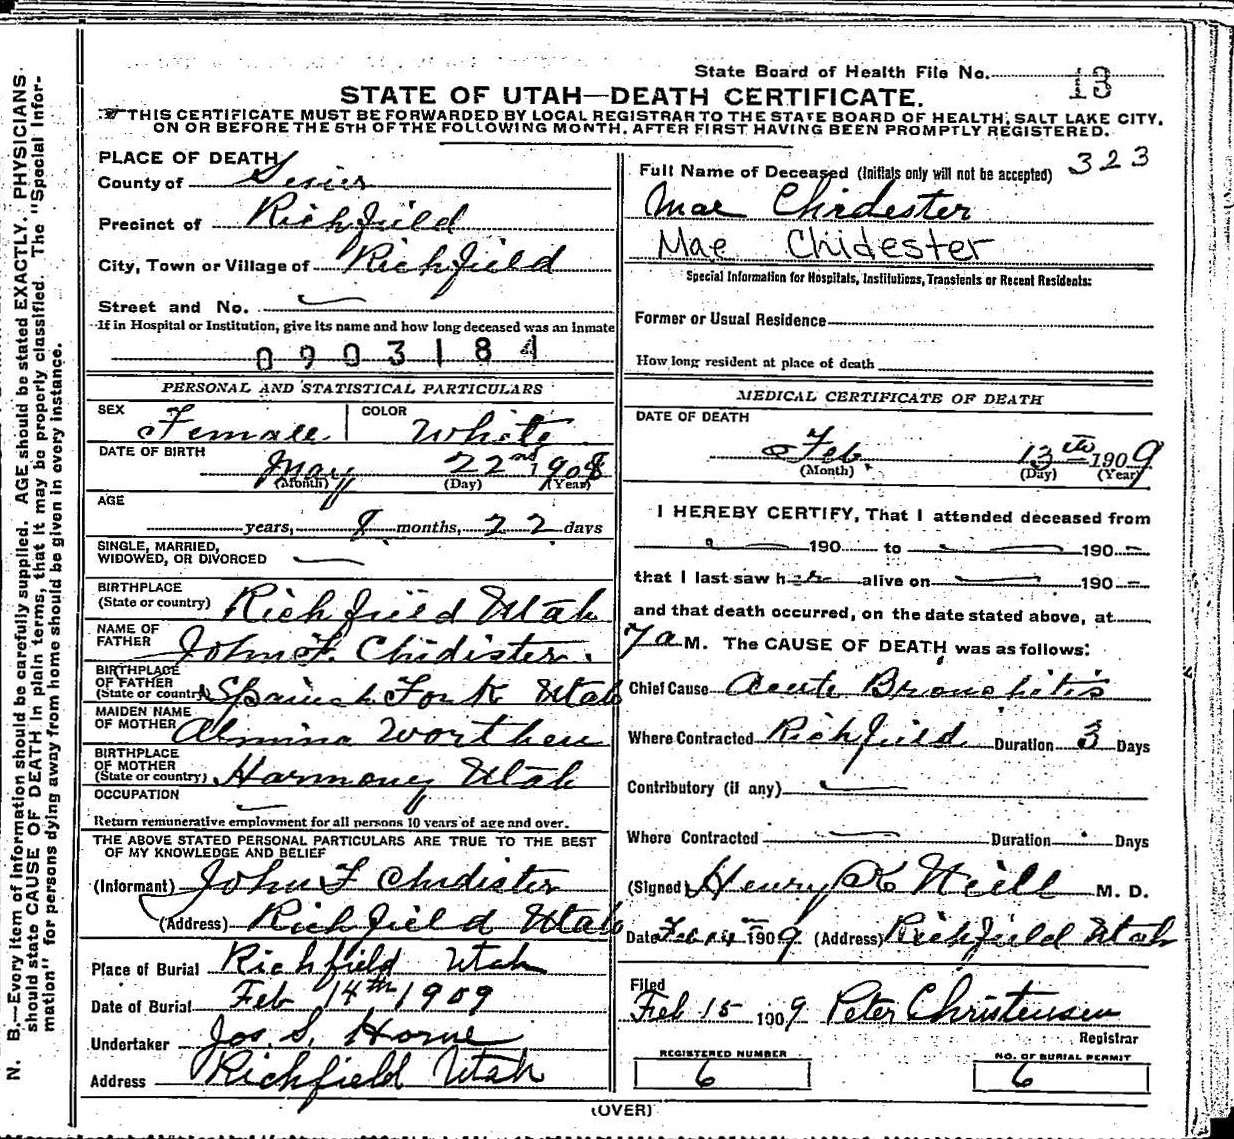 N. B.—Every item of information should be carefully supplied. AGE should be stated EXACTLY. PHYSICIANS
should state CAUSE OF DEATH in plain terms, that it may be properly classified. The "Special Infor-
mation" for persons dying away from home should be given in every instance.
State Board of Health File No. 13
STATE OF UTAH—DEATH CERTIFICATE.
THIS CERTIFICATE MUST BE FORWARDED BY LOCAL REGISTRAR TO THE STATE BOARD OF HEALTH, SALT LAKE CITY,
ON OR BEFORE THE 5TH OF THE FOLLOWING MONTH, AFTER FIRST HAVING BEEN PROMPTLY REGISTERED.
PLACE OF DEATH
County of Sevier
Precinct of Richfield
City, Town or Village of Richfield
Street and No.
If in Hospital or Institution, give its name and how long deceased was an inmate
0903184
PERSONAL AND STATISTICAL PARTICULARS
SEX Female COLOR White
DATE OF BIRTH
May 22nd 1908
(Month) (Day) (Year)
AGE
years, 8 months, 22 days
SINGLE, MARRIED,
WIDOWED, OR DIVORCED
BIRTHPLACE
(State or country) Richfield Utah
NAME OF
FATHER John F. Chidister.
BIRTHPLACE
OF FATHER
(State or country) Spanish Fork Utah
MAIDEN NAME
OF MOTHER Almina Worthen
BIRTHPLACE
OF MOTHER
(State or country) Harmony Utah
OCCUPATION
Return remunerative employment for all persons 10 years of age and over.
THE ABOVE STATED PERSONAL PARTICULARS ARE TRUE TO THE BEST
OF MY KNOWLEDGE AND BELIEF
(Informant) John F Chidister
(Address) Richfield Utah
Place of Burial Richfield Utah
Date of Burial Feb 14th 1909
Undertaker Jos. S. Horne
Address Richfield Utah
323
Full Name of Deceased (Initials only will not be accepted)
Mae Chidester
Mae Chidester
Special Information for Hospitals, Institutions, Transients or Recent Residents:
Former or Usual Residence
How long resident at place of death
MEDICAL CERTIFICATE OF DEATH
DATE OF DEATH
Feb 13th 1909
(Month) (Day) (Year)
I HEREBY CERTIFY, That I attended deceased from
190 to 190
that I last saw her alive on 190
and that death occurred, on the date stated above, at
7 a M. The CAUSE OF DEATH was as follows:
Chief Cause Acute Bronchitis
Where Contracted Richfield Duration 3 Days
Contributory (if any)
Where Contracted Duration Days
(Signed) Henry K Neill M. D.
Date Feb 14th 1909 (Address) Richfield Utah
Filed
Feb 15 1909 Peter Christensen
Registrar
REGISTERED NUMBER
6
NO. OF BURIAL PERMIT
6
(OVER)